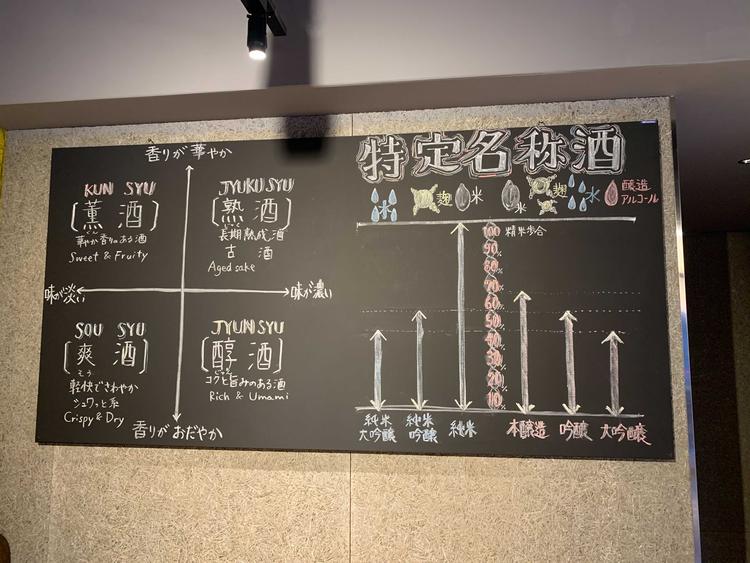 香りが華やか
KUN SYU
〔薫酒〕
くん
華やか香りのある酒
Sweet & Fruity
JYUKU SYU
〔熟酒〕
じゅく
長期熟成酒
古酒
Aged sake
味が淡い
味が濃い
SOU SYU
〔爽酒〕
そう
軽快でさわやか
シュワッと系
Crispy & Dry
JYUN SYU
〔醇酒〕
じゅん
コクと旨みのある酒
Rich & Umami
香りがおだやか
特定名称酒
水 麹 米
米 麹 水 醸造アルコール
100 精米歩合
90%
80%
70%
60%
50%
40%
30%
20%
10%
純米大吟醸
純米吟醸
純米
本醸造
吟醸
大吟醸